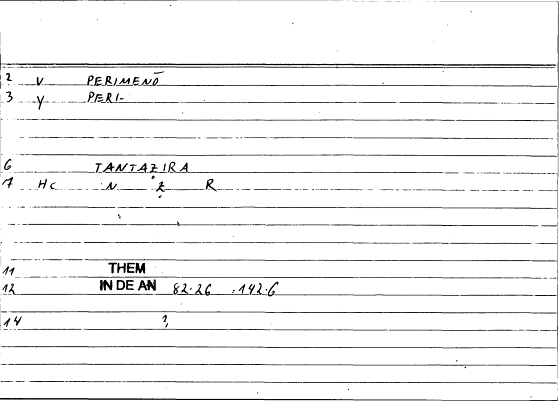 2 V PERIMENŌ
3 Y PERI-
6 TANTAẒIRA
7 Hc N Ẓ R
11 THEM
12 IN DE AN 82.26 .142.6
14 ?,